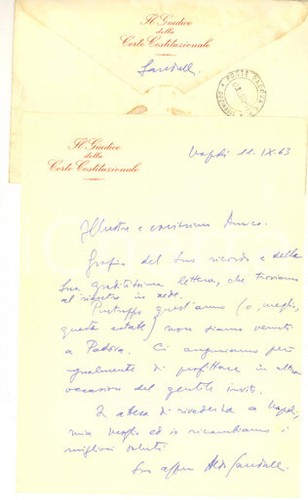 Il Giudice
della
Corte Costituzionale
Sandulli
POSTE PADOVA
Il Giudice
della
Corte Costituzionale
Napoli 11.IX.63
Illustre e carissimo Amico,
Grazie del Suo ricordo e della
Sua graditissima lettera, che troviamo
al rientro in sede.
Purtroppo quest'anno (o, meglio,
questa estate) non siamo venuti
a Padova. Ci auguriamo però
ugualmente di profittare in altra
occasione del gentile invito.
In attesa di rivederLa a Napoli,
mia moglie ed io ricambiamo i
migliori saluti.
Suo Aldo Sandulli